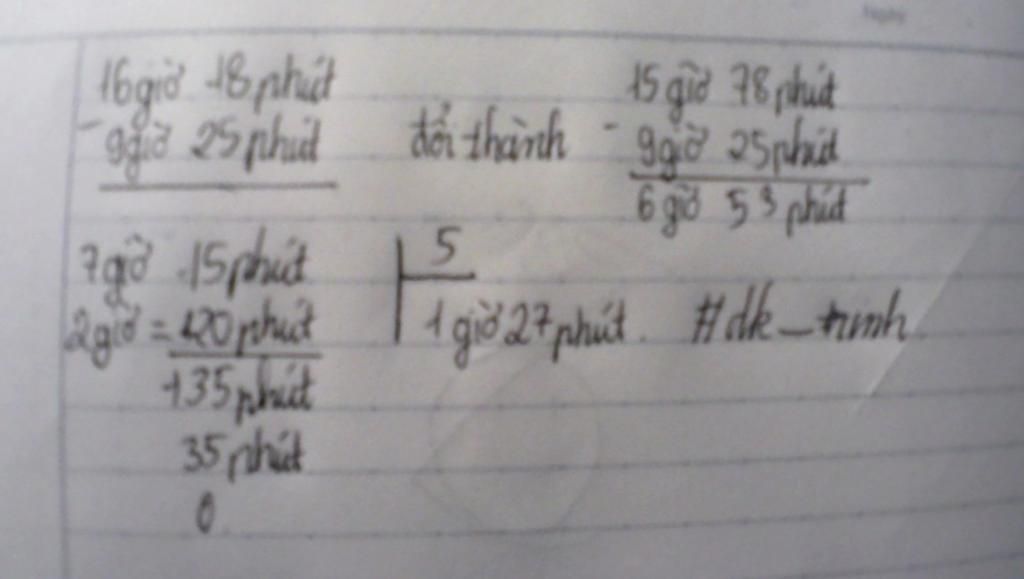 16 giờ 18 phút
- 9 giờ 25 phút
đổi thành
15 giờ 78 phút
- 9 giờ 25 phút
6 giờ 53 phút
7 giờ 15 phút
5
2 giờ = 120 phút
1 giờ 27 phút. #dk_trinh
135 phút
35 phút
0